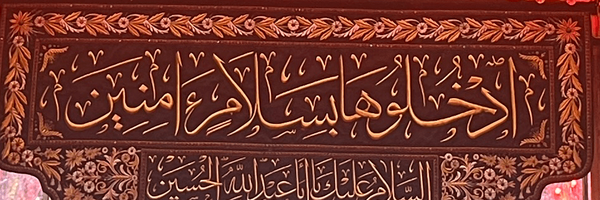 ادْخُلُوهَا بِسَلَامٍ ءَامِنِينَ
السَّلَامُ عَلَيْكَ يَا أَبَا عَبْدِ اللَّهِ الْحُسَيْنِ